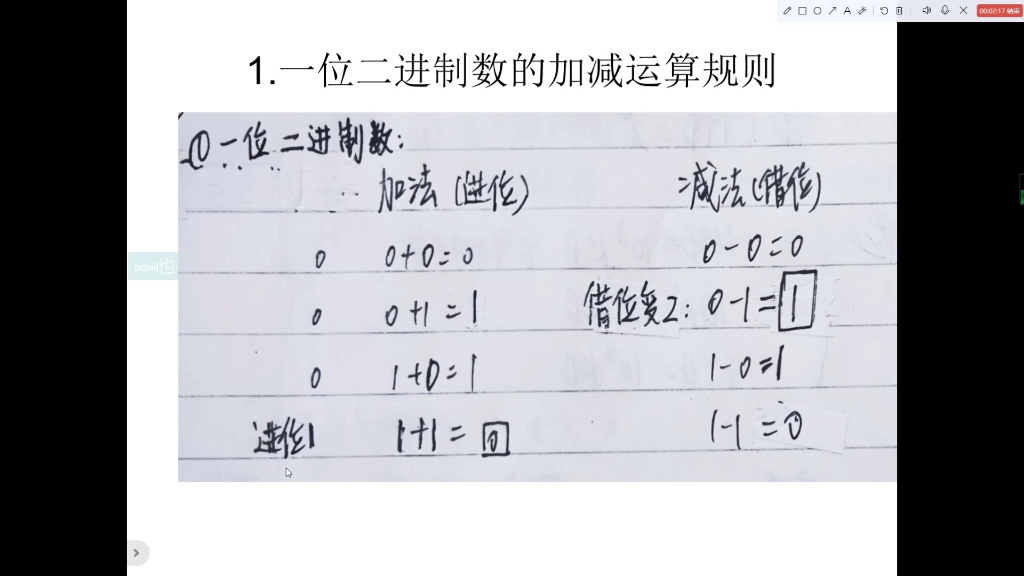 00:02:17 结束
1.一位二进制数的加减运算规则
① 一位二进制数:
加法(进位) 减法(借位)
0 0+0=0 0-0=0
0 0+1=1 借位变2: 0-1=1
0 1+0=1 1-0=1
进位1 1+1=0 1-1=0
bilibili也